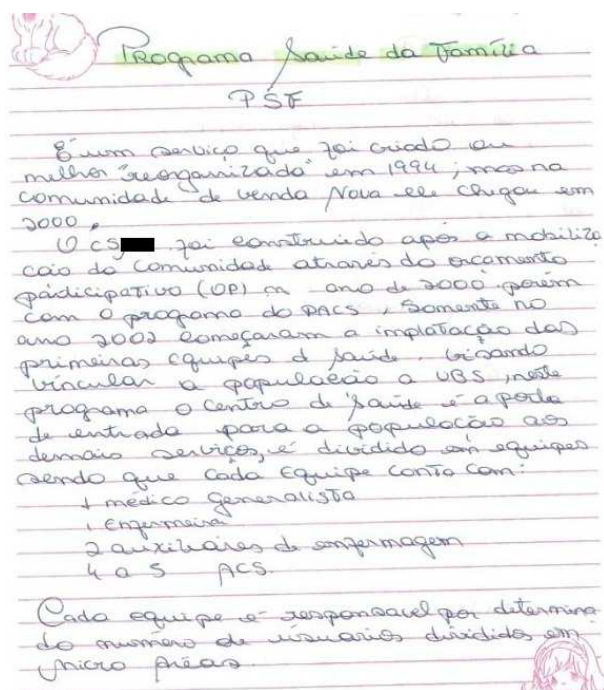 Programa Saúde da Família
PSF
É um serviço que foi criado ou
melhor "reorganizado" em 1994; mas na
comunidade de venda Nova ele chegou em
2000.
O CS foi construido após a mobiliza
cão da Comunidade através do orçamento
párdicipativo (OP) m ano de 2000 porém
com o programa do PACS, Somente no
ano 2002 começaram a implatação das
primeiras equipes d saúde. visando
vincular a população a UBS, neste
programa o Centro de Saúde é a porta
de entrada para a população aos
demais serviços, é dividido em equipes
sendo que cada Equipe conta com:
1 médico generalista
1 Enfermeira
2 auxiliares de enfermagem
4 a 5 ACS.
Cada equipe é responsavel por determina
do numero de usuarios divididos em
micro áreas.